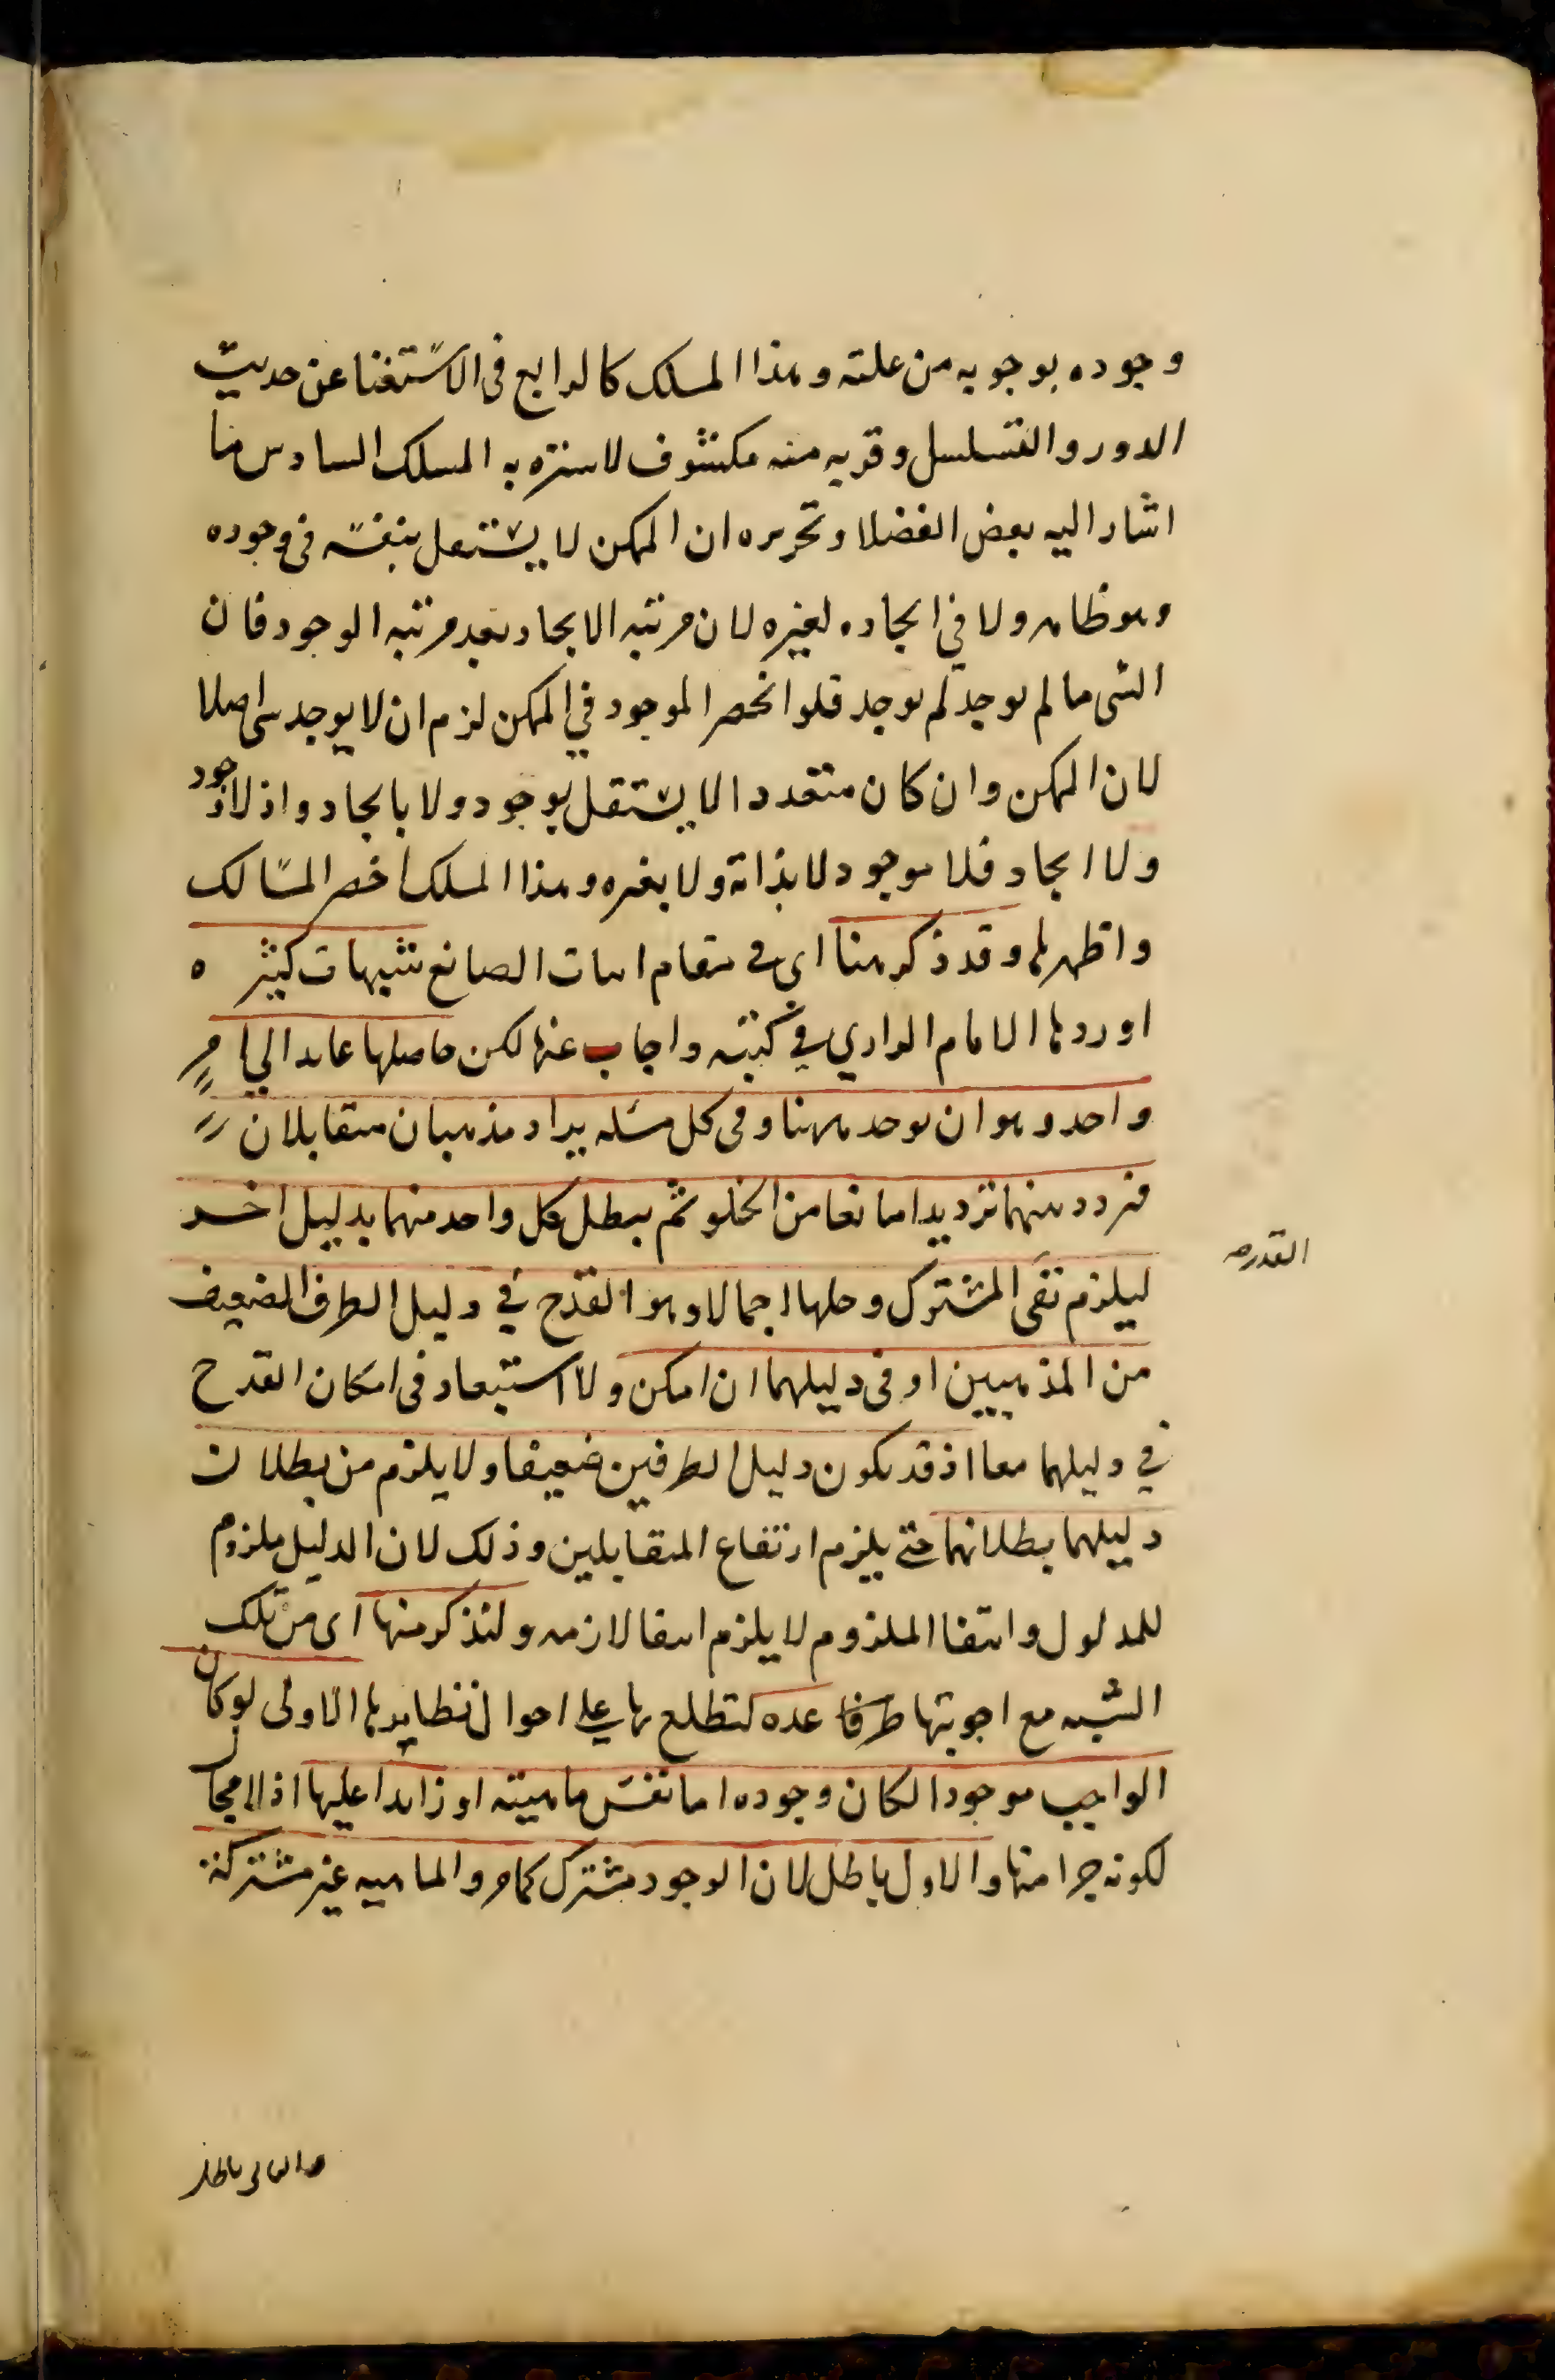 وجوده بوجوبه من علته وهذا المسلك كالرابع فى الاستغنا عن حديث
الدور والتسلسل وقربه منه مكشوف لاستره به المسلك السادس ما
اشار اليه بعض الفضلا وتحريره ان الممكن لا يستقل بنفسه فى وجوده
وهو ظاهر ولا في ايجاده لغيره لان مرتبه الايجاد بعد مرتبه الوجود فان
الشى ما لم يوجد لم يوجد فلو انحصر الموجود في الممكن لزم ان لا يوجد شى اصلا
لان الممكن وان كان متعددا لا يستقل بوجود ولا بايجاد واذ لا وجود
ولا ايجاد فلا موجود لا بذاته ولا بغيره وهذا المسلك اخصر المسالك
واظهرها وقد ذكر هنا اى فى مقام اثبات الصانع شبهات كثيره
اوردها الامام الرازي في كتبه واجاب عنها لكن حاصلها عايد الي امر
واحد وهو ان يوجد ههنا وفى كل مسئله يراد مذهبان متقابلان
فيردد بينهما ترديدا مانعا من الخلو ثم يبطل كل واحد منهما بدليل اخر
ليلزم نفى المشترك وحلها اجمالا وهو القدح في دليل الطرف الضعيف
من المذهبين او فى دليلهما ان امكن ولا استبعاد فى امكان القدح
في دليلهما معا اذ قد يكون دليل الطرفين ضعيفا ولا يلزم من بطلان
دليلهما بطلانهما حتى يلزم ارتفاع المتقابلين وذلك لان الدليل ملزوم
للمدلول وانتفا الملزوم لا يلزم انتفا لازمه ولنذكر منها اى من تلك
الشبه مع اجوبتها طرفا عده لتطلع بها على احوال نظايرها الاولى لو كان
الواجب موجودا لكان وجوده اما نفس ماهيته او زايدا عليها اذ لا مجال
لكونه جزا منها والاول باطل لان الوجود مشترك كما مر والماهيه غير مشتركة
القدره
والثانى باطل